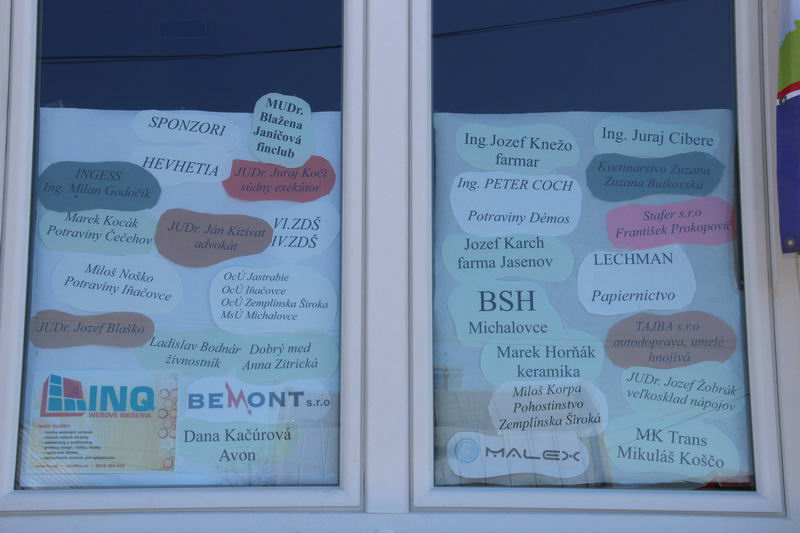 SPONZORI
MUDr.
Blažena
Janičová
finclub
HEVHETIA
JUDr. Juraj Koči
súdny exekútor
INGESS
Ing. Milan Godočik
Marek Kocák
Potraviny Čečehov
JUDr. Ján Kizivat
advokát
VI.ZDŠ
IV.ZDŠ
Miloš Noško
Potraviny Iňačovce
OcÚ Jastrabie
OcÚ Iňačovce
OcÚ Zemplínska Široka
MsÚ Michalovce
JUDr. Jozef Blaško
Ladislav Bodnár
živnostník
Dobrý med
Anna Zitrická
LINQ
WEBOVÉ RIEŠENIA
BEMONT s.r.o
Dana Kačúrová
Avon
Ing.Jozef Knežo
farmar
Ing. Juraj Cibere
Ing. PETER COCH
Potraviny Démos
Kvetinárstvo Zuzana
Zuzana Butkovská
Stafer s.r.o
František Prokopovič
Jozef Karch
farma Jasenov
LECHMAN
Papiernictvo
BSH
Michalovce
TAJBA s.r.o
autodoprava, umelé
hnojivá
Marek Horňák
keramika
JUDr. Jozef Žobrák
veľkosklad nápojov
Miloš Korpa
Pohostinstvo
Zemplínska Široká
MALEX
MK Trans
Mikuláš Koščo